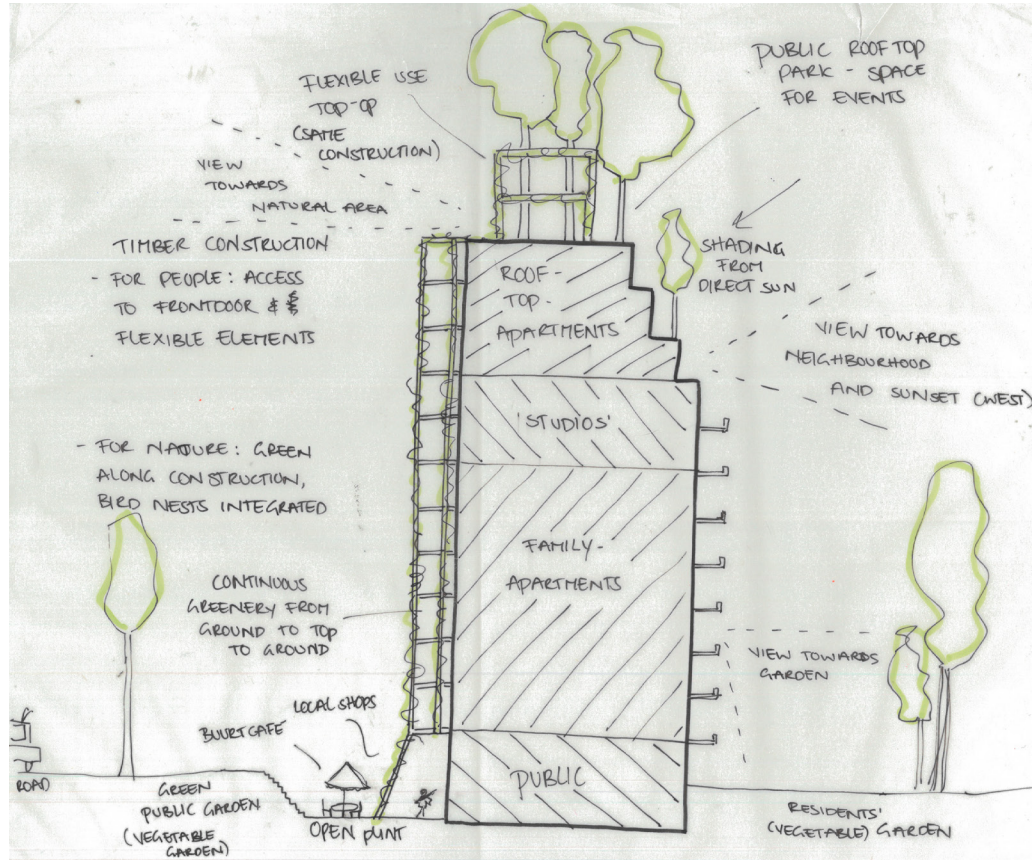 FLEXIBLE USE
TOP-OP
(SAME
CONSTRUCTION)
PUBLIC ROOFTOP
PARK - SPACE
FOR EVENTS
VIEW
TOWARDS
NATURAL AREA
TIMBER CONSTRUCTION
- FOR PEOPLE: ACCESS
TO FRONTDOOR &
FLEXIBLE ELEMENTS
SHADING
FROM
DIRECT SUN
ROOF-
TOP-
APARTMENTS
VIEW TOWARDS
NEIGHBOURHOOD
AND SUNSET (WEST)
'STUDIOS'
- FOR NATURE: GREEN
ALONG CONSTRUCTION,
BIRD NESTS INTEGRATED
FAMILY-
APARTMENTS
CONTINUOUS
GREENERY FROM
GROUND TO TOP
TO GROUND
VIEW TOWARDS
GARDEN
LOCAL SHOPS
BUURTCAFÉ
PUBLIC
ROAD
GREEN
PUBLIC GARDEN
(VEGETABLE
GARDEN)
OPEN PLINT
RESIDENTS'
(VEGETABLE) GARDEN